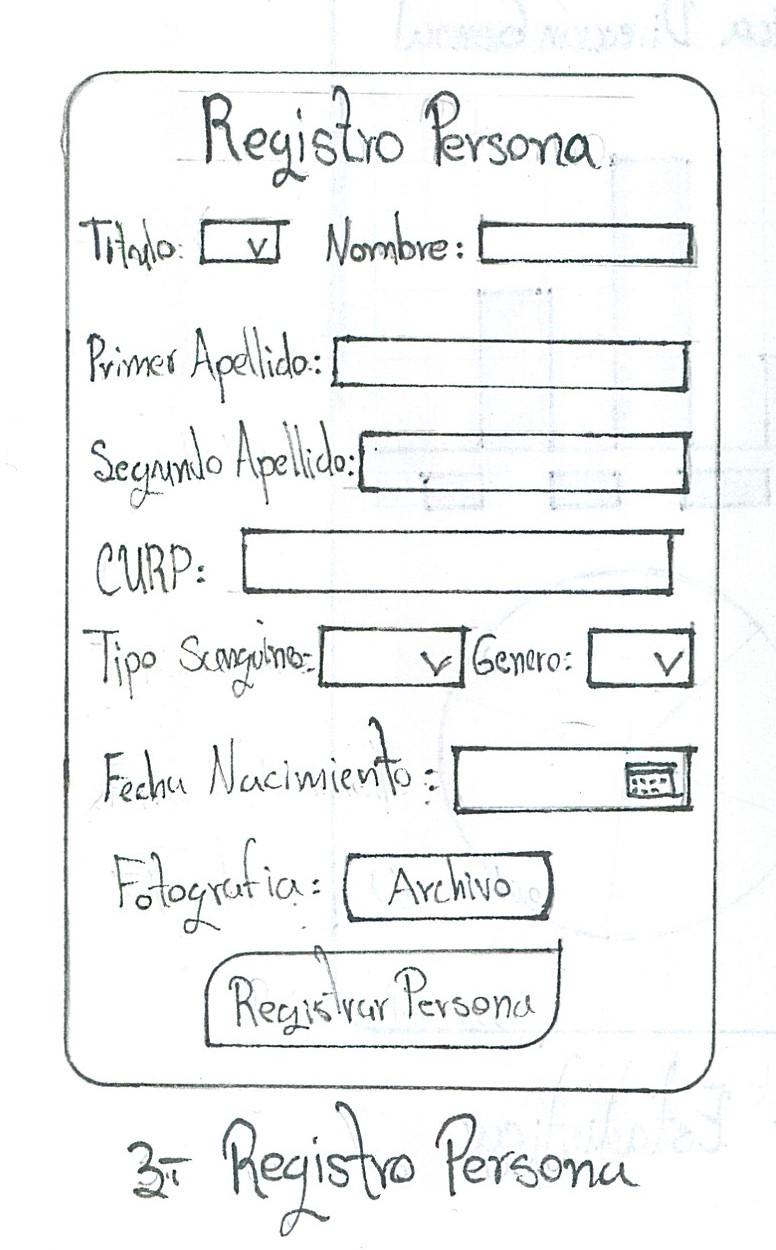 Registro Persona
Titulo: Nombre:
Primer Apellido:
Segundo Apellido:
CURP:
Tipo Sanguineo: Genero:
Fecha Nacimiento:
Fotografia: Archivo
Registrar Persona
3.- Registro Persona